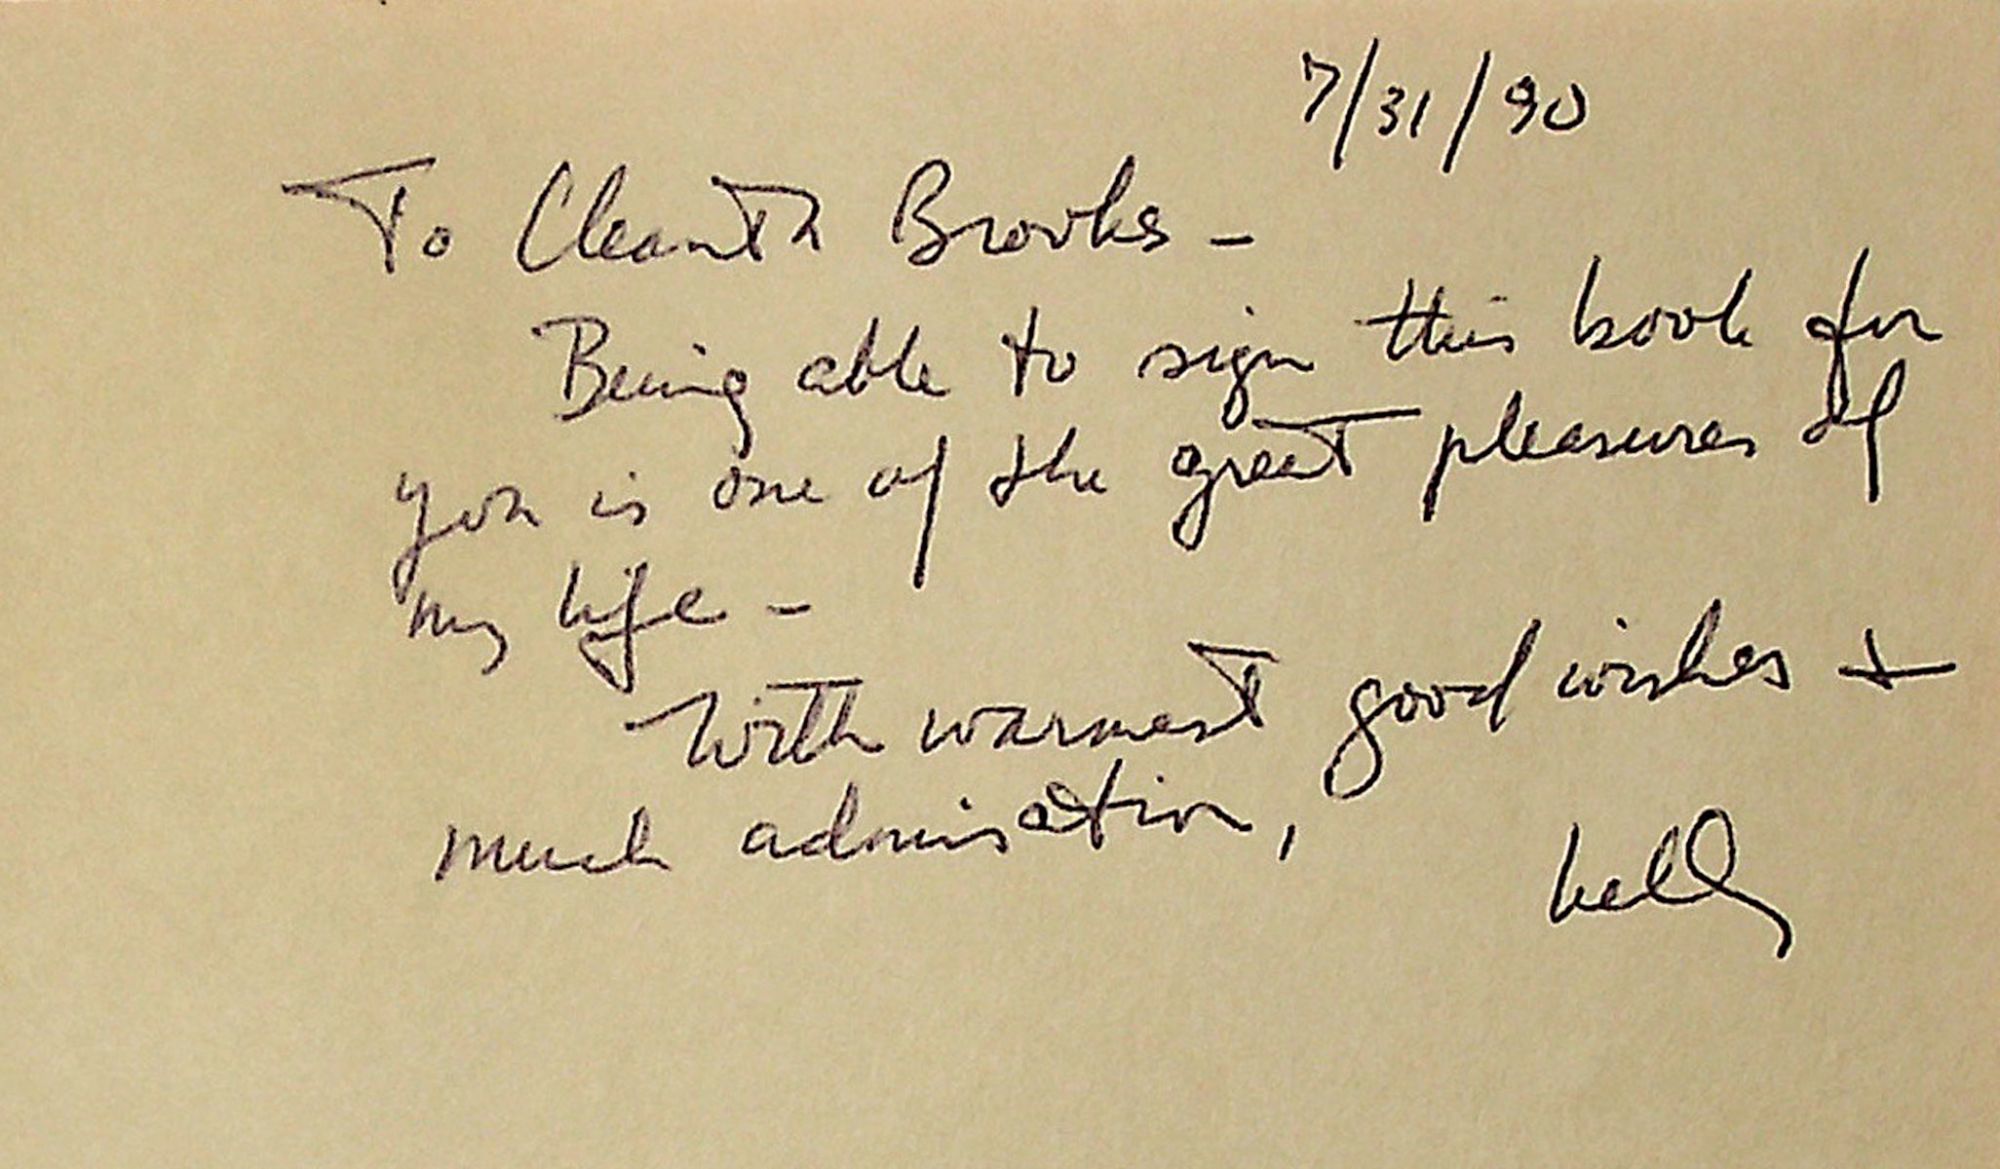 7/31/90
To Cleanth Brooks –
Being able to sign this book for
you is one of the great pleasures of
my life –
With warmest good wishes +
much admiration,
Kelly